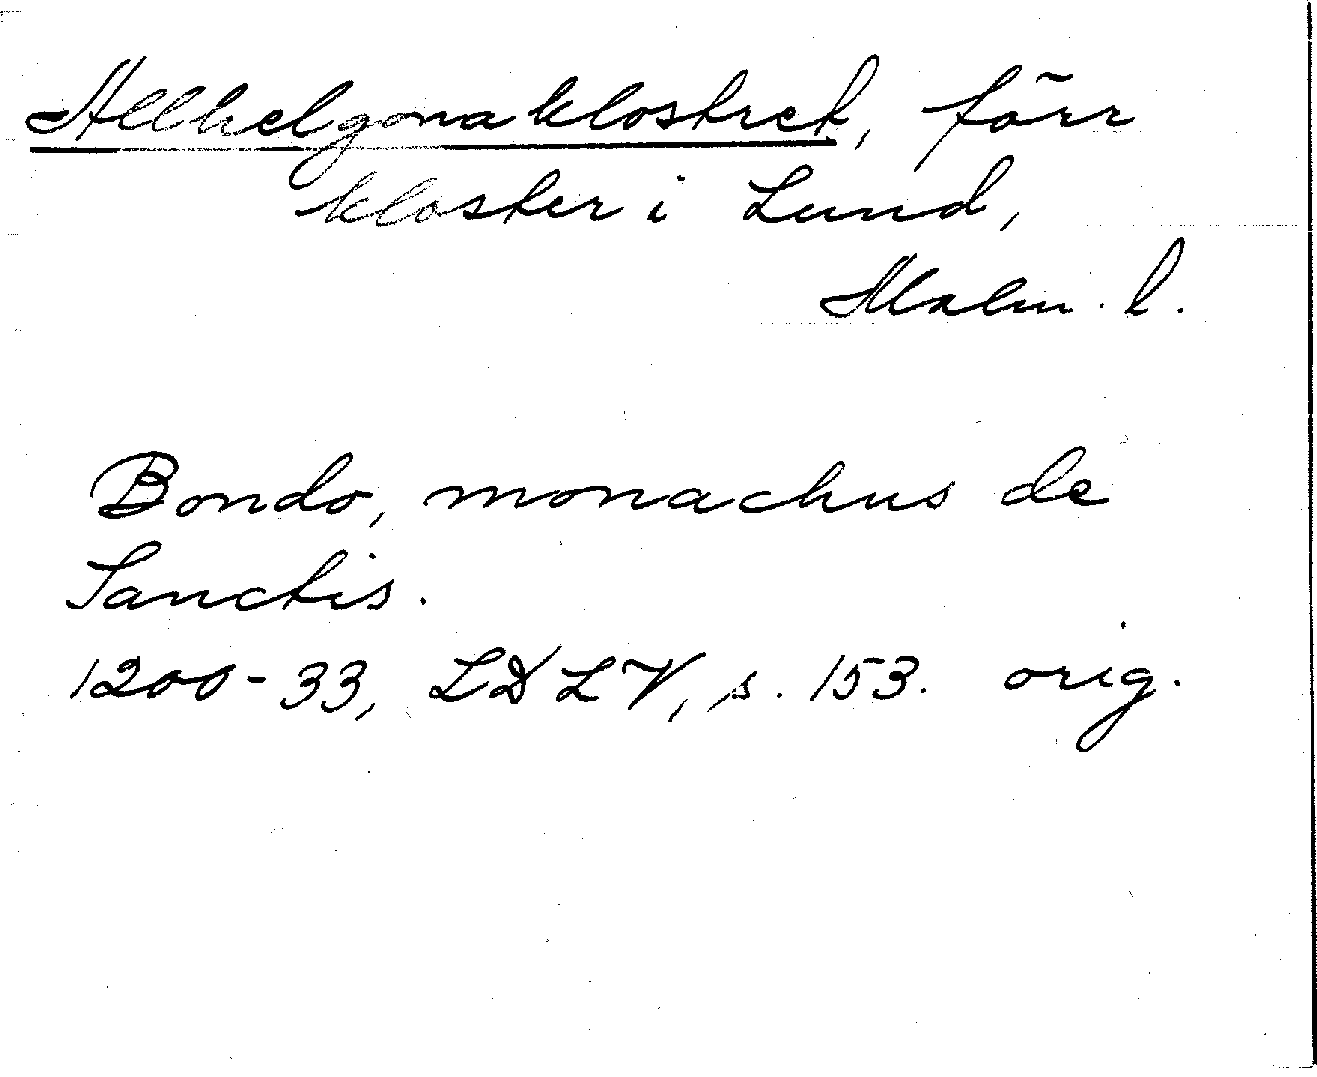 Allhelgonaklostret, förr
kloster i Lund,
Malm. l.
Bondo, monachus de
Sanctis.
1200-33, LDLV, s. 153. orig.